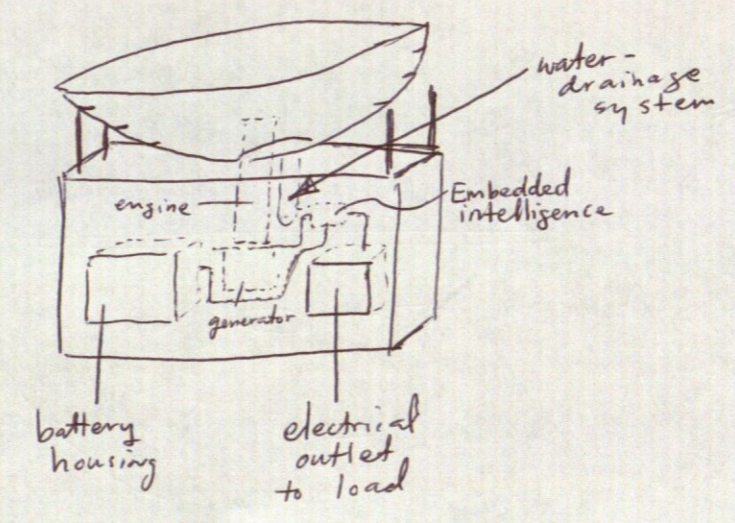 water-
drainage
system
engine
Embedded
intelligence
generator
battery
housing
electrical
outlet
to load